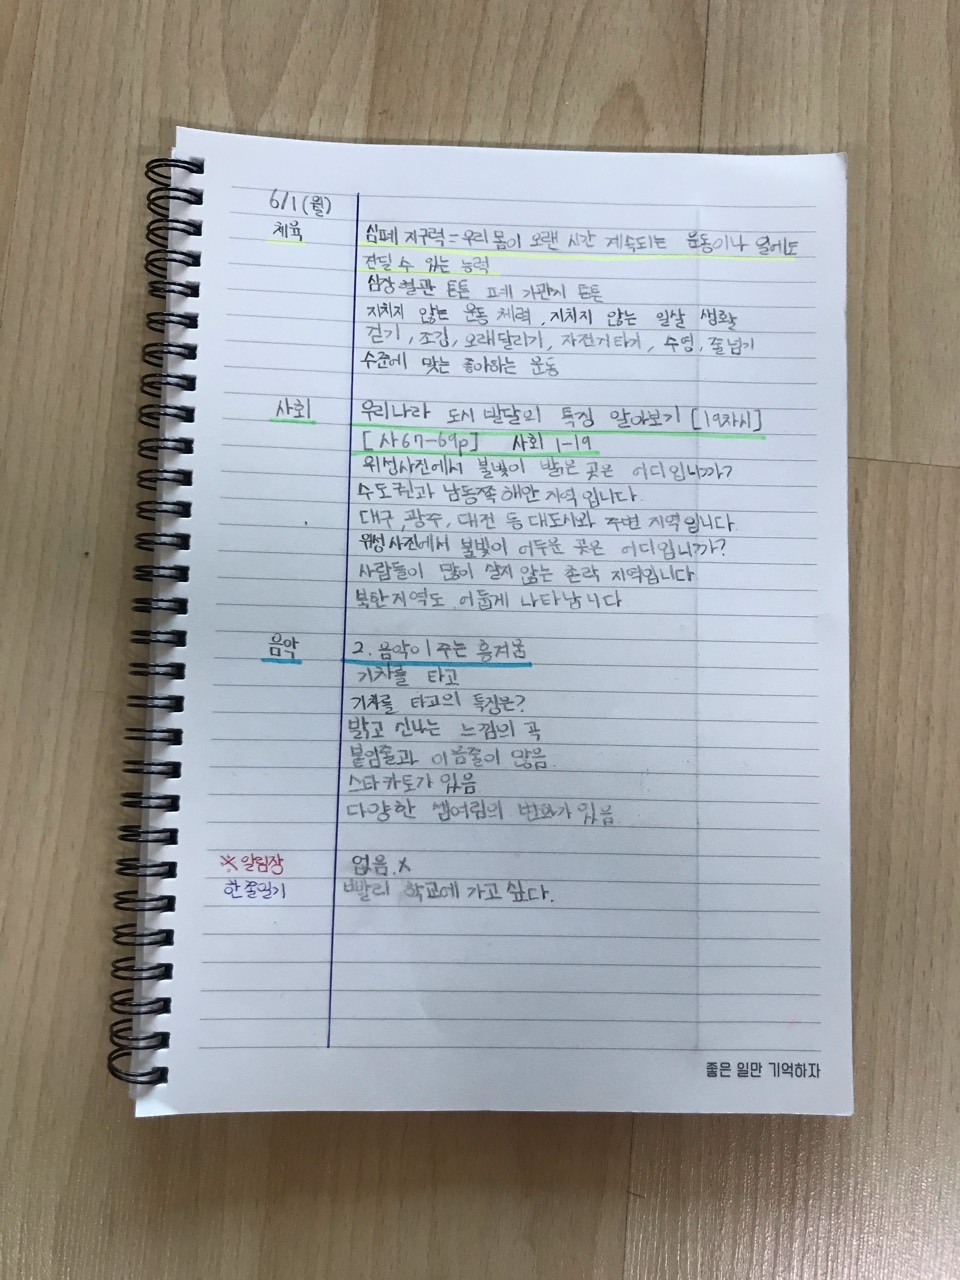 6/1(월)
체육 심폐 지구력 = 우리 몸이 오랜 시간 계속되는 운동이나 일에도
견딜 수 있는 능력
심장·혈관 튼튼 폐 기관지 튼튼
지치지 않는 운동 체력, 지치지 않는 일상 생활
걷기, 조깅, 오래달리기, 자전거타기, 수영, 줄넘기
수준에 맞는 좋아하는 운동
사회 우리나라 도시 발달의 특징 알아보기 [19차시]
[사67-69p] 사회 1-19
위성사진에서 불빛이 밝은 곳은 어디입니까?
수도권과 남동쪽 해안 지역입니다.
대구, 광주, 대전 등 대도시와 주변 지역입니다.
위성사진에서 불빛이 어두운 곳은 어디입니까?
사람들이 많이 살지 않는 촌락 지역입니다
북한지역도 어둡게 나타납니다
음악 2. 음악이 주는 흥겨움
기차를 타고
기차를 타고의 특징은?
밝고 신나는 느낌의 곡
붙임줄과 이음줄이 많음.
스타카토가 있음
다양한 셈여림의 변화가 있음.
※알림장 없음.x
한줄일기 빨리 학교에 가고 싶다.
좋은 일만 기억하자